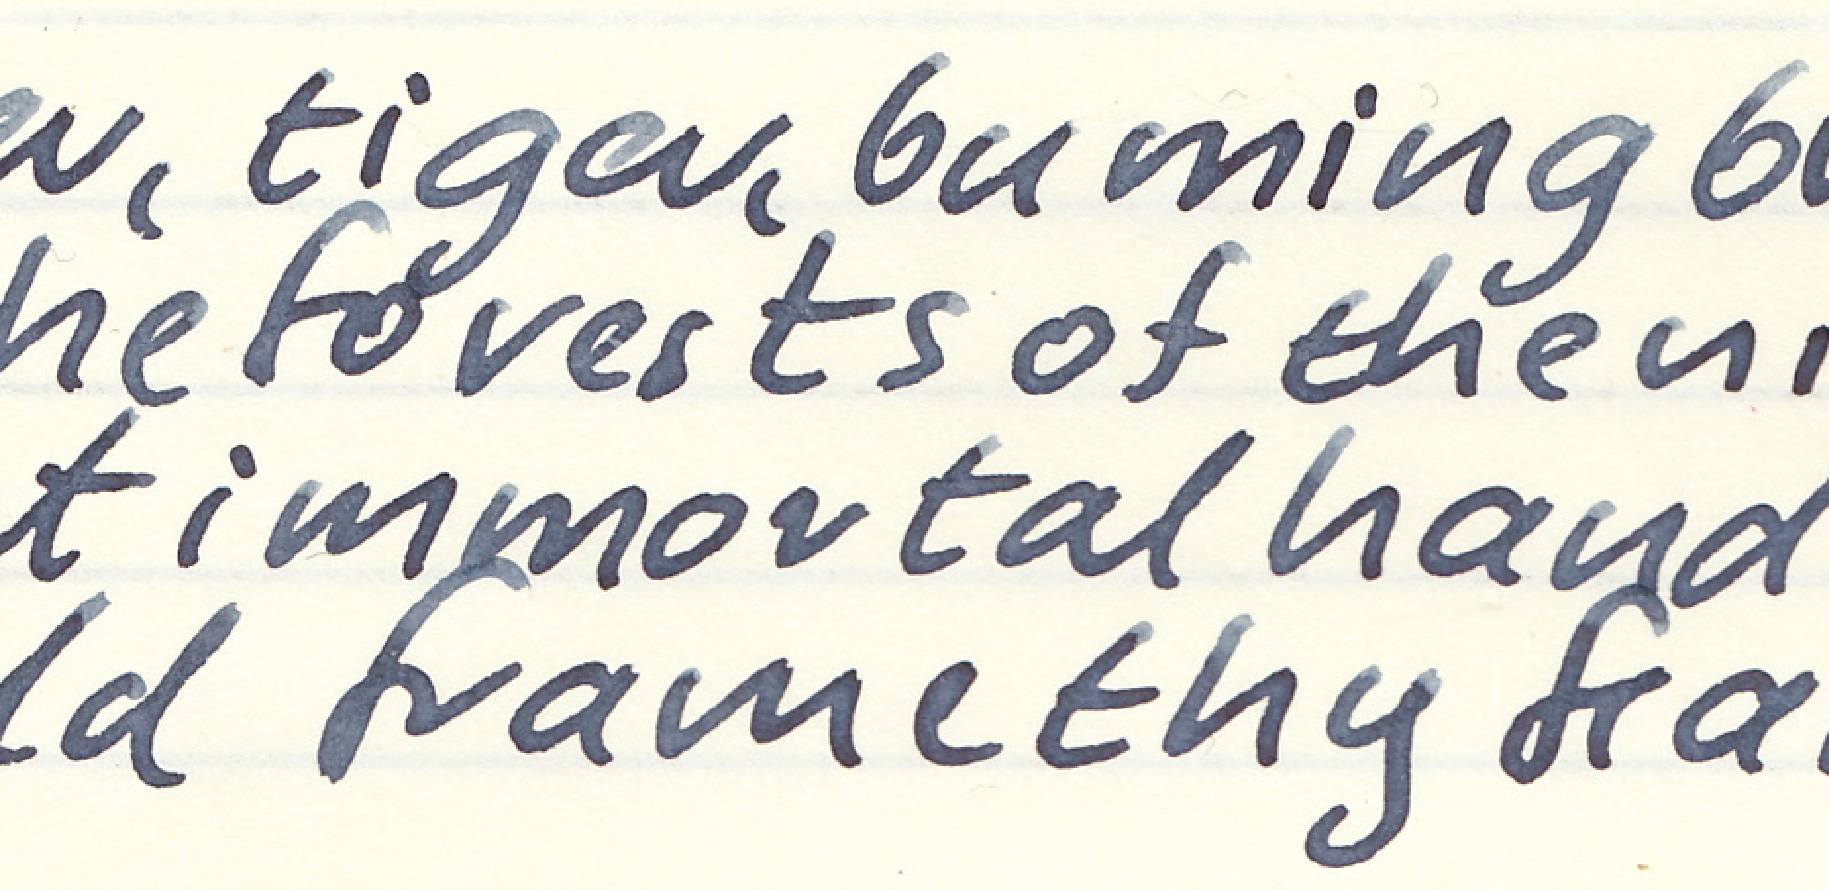 er, tiger, burning b
he forests of the ni
t immortal hand
ld frame thy fea